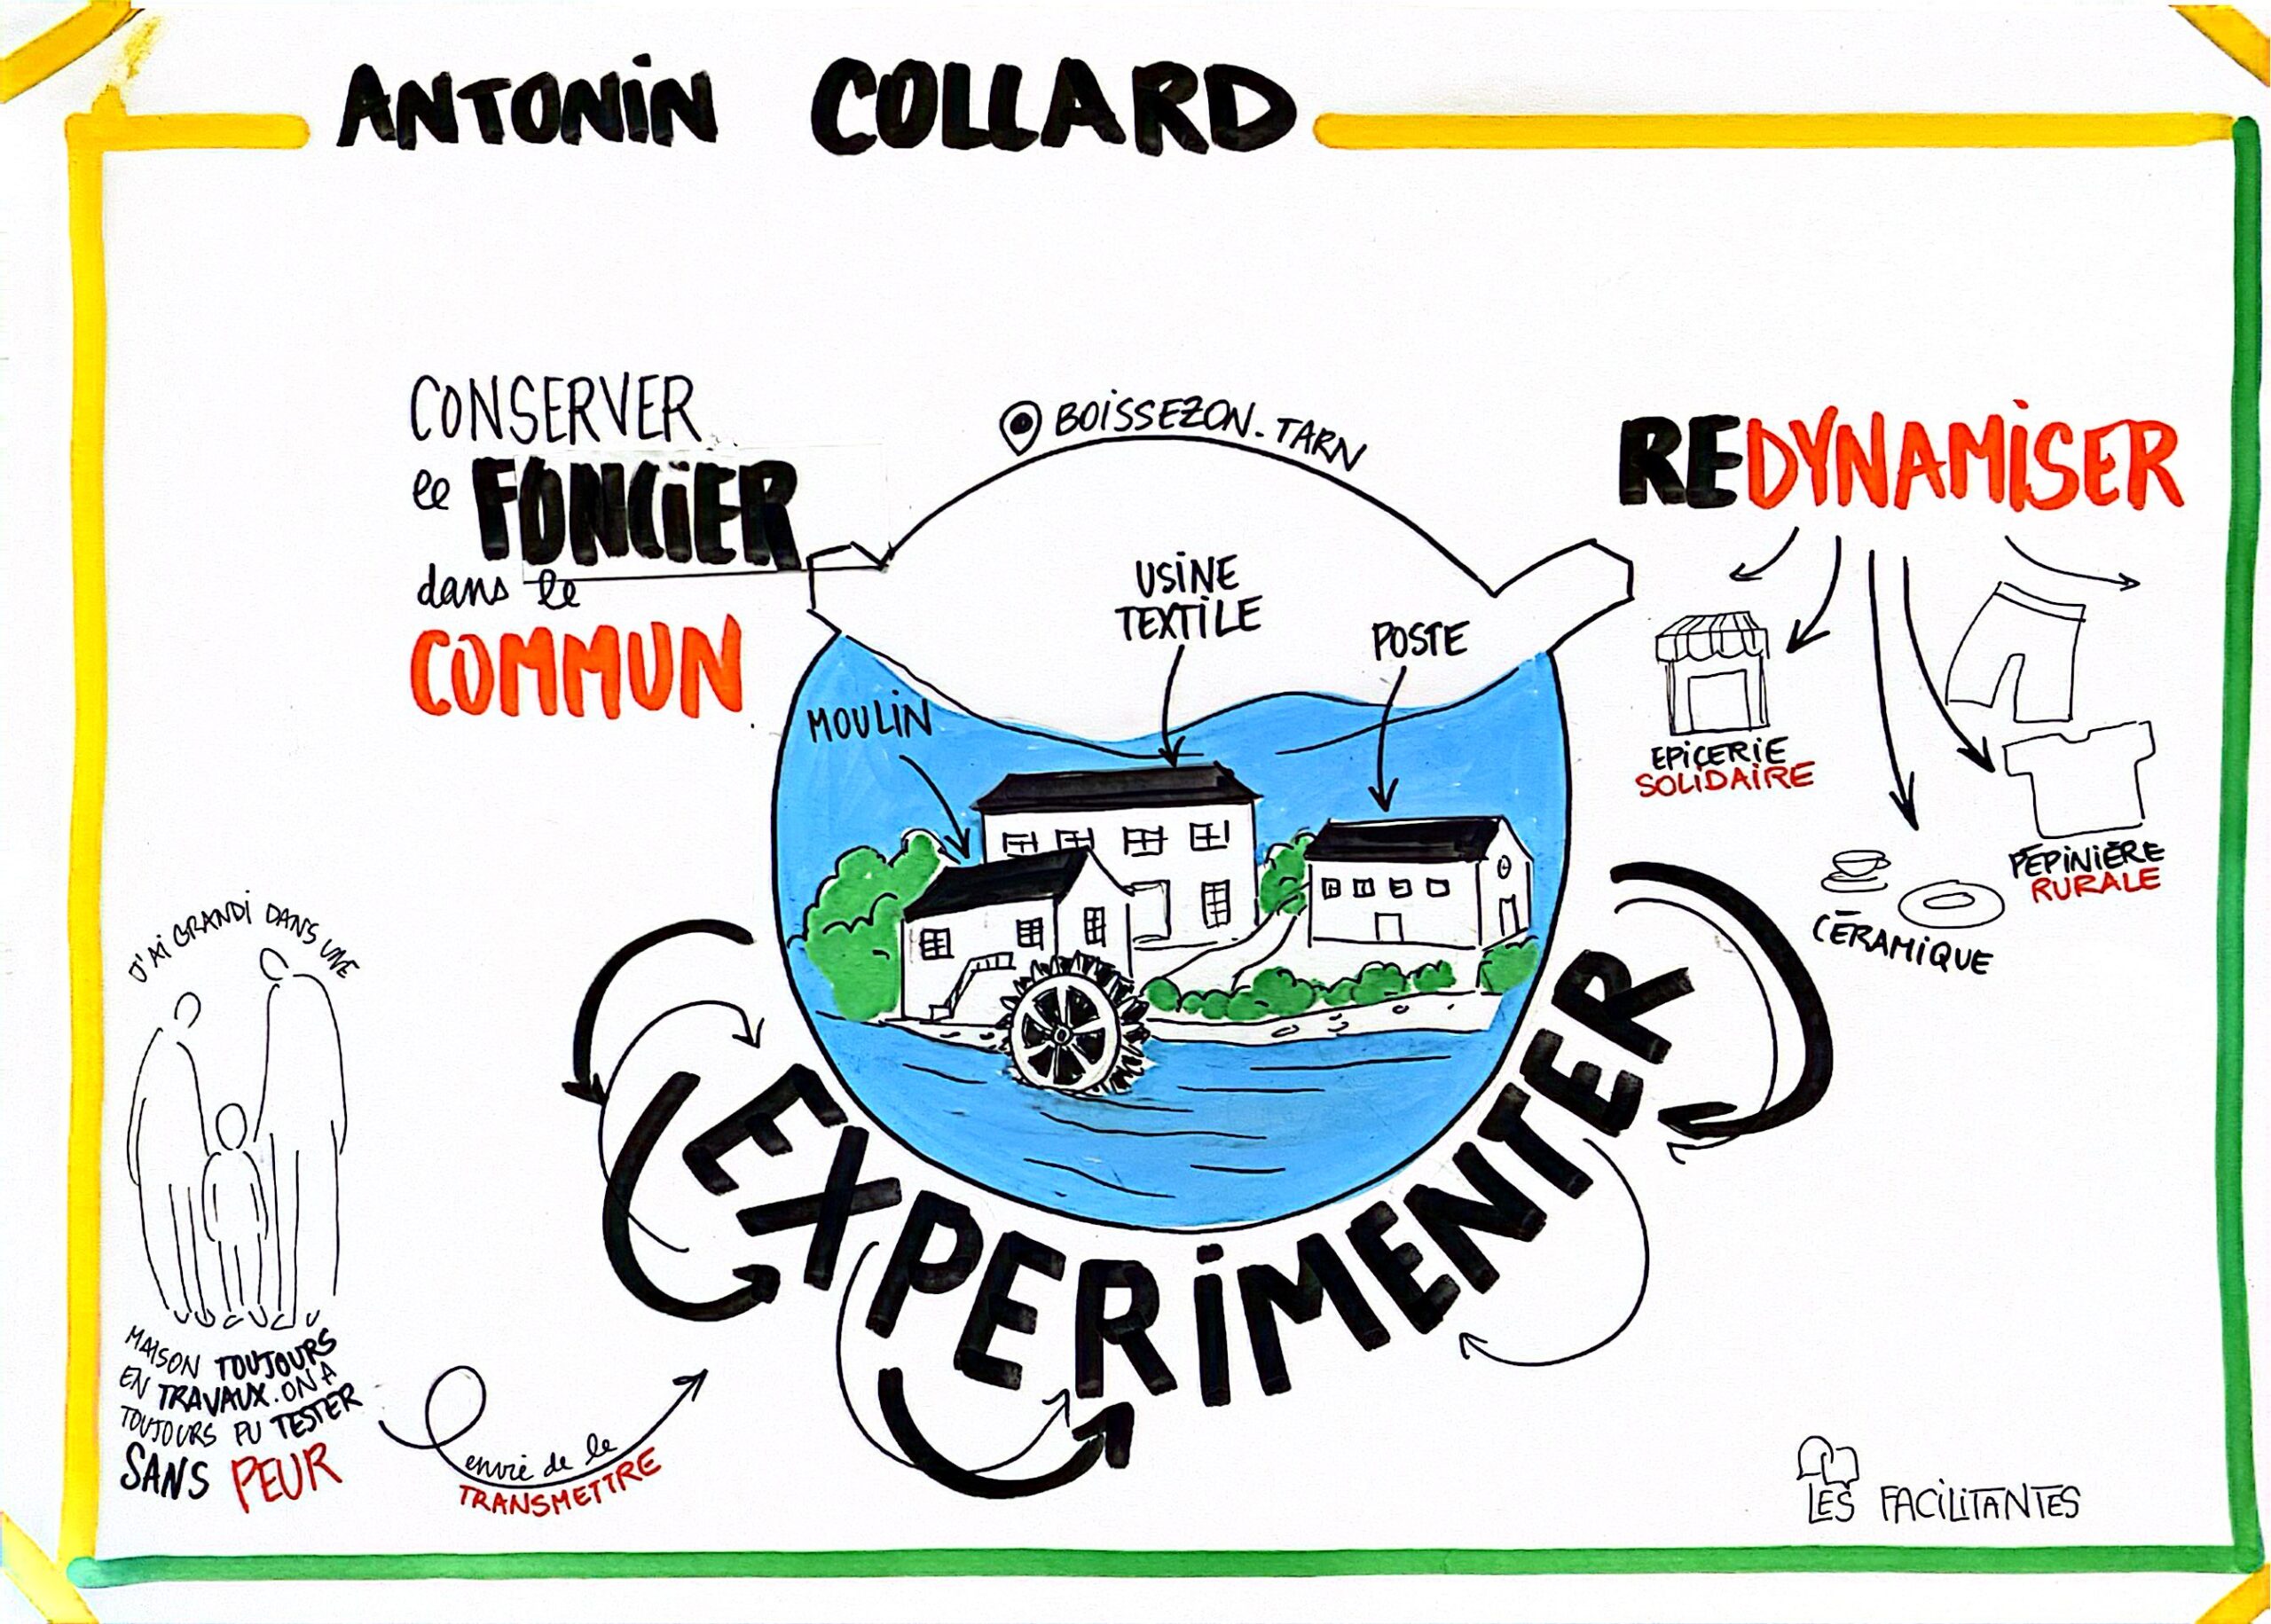 ANTONIN COLLARD
CONSERVER
le FONCIER
dans le
COMMUN
BOISSEZON - TARN
USINE
TEXTILE
POSTE
MOULIN
REDYNAMISER
EPICERIE
SOLIDAIRE
PÉPINIÈRE
RURALE
CÉRAMIQUE
EXPERIMENTER
J'AI GRANDI DANS UNE
MAISON TOUJOURS
EN TRAVAUX. ON A
TOUJOURS PU TESTER
SANS PEUR
envie de le
TRANSMETTRE
LES FACILITANTES